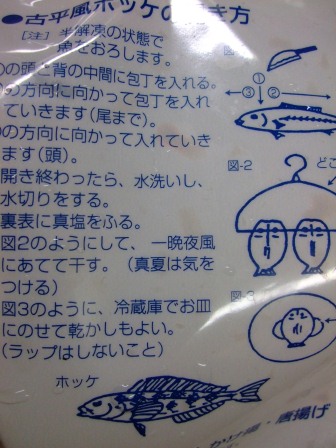 ●古平風ホッケの開き方
[注] 半解凍の状態で
魚をおろします。
の頭と背の中間に包丁を入れる。
の方向に向かって包丁を入れ
ていきます(尾まで)。
の方向に向かって入れていき
ます(頭)。
開き終わったら、水洗いし、
水切りをする。
裏表に真塩をふる。
図2のようにして、一晩夜風
にあてて干す。(真夏は気を
つける)
図3のように、冷蔵庫でお皿
にのせて乾かしもよい。
(ラップはしないこと)
ホッケ
①
③ ②
図-2
図-3
唐揚げ